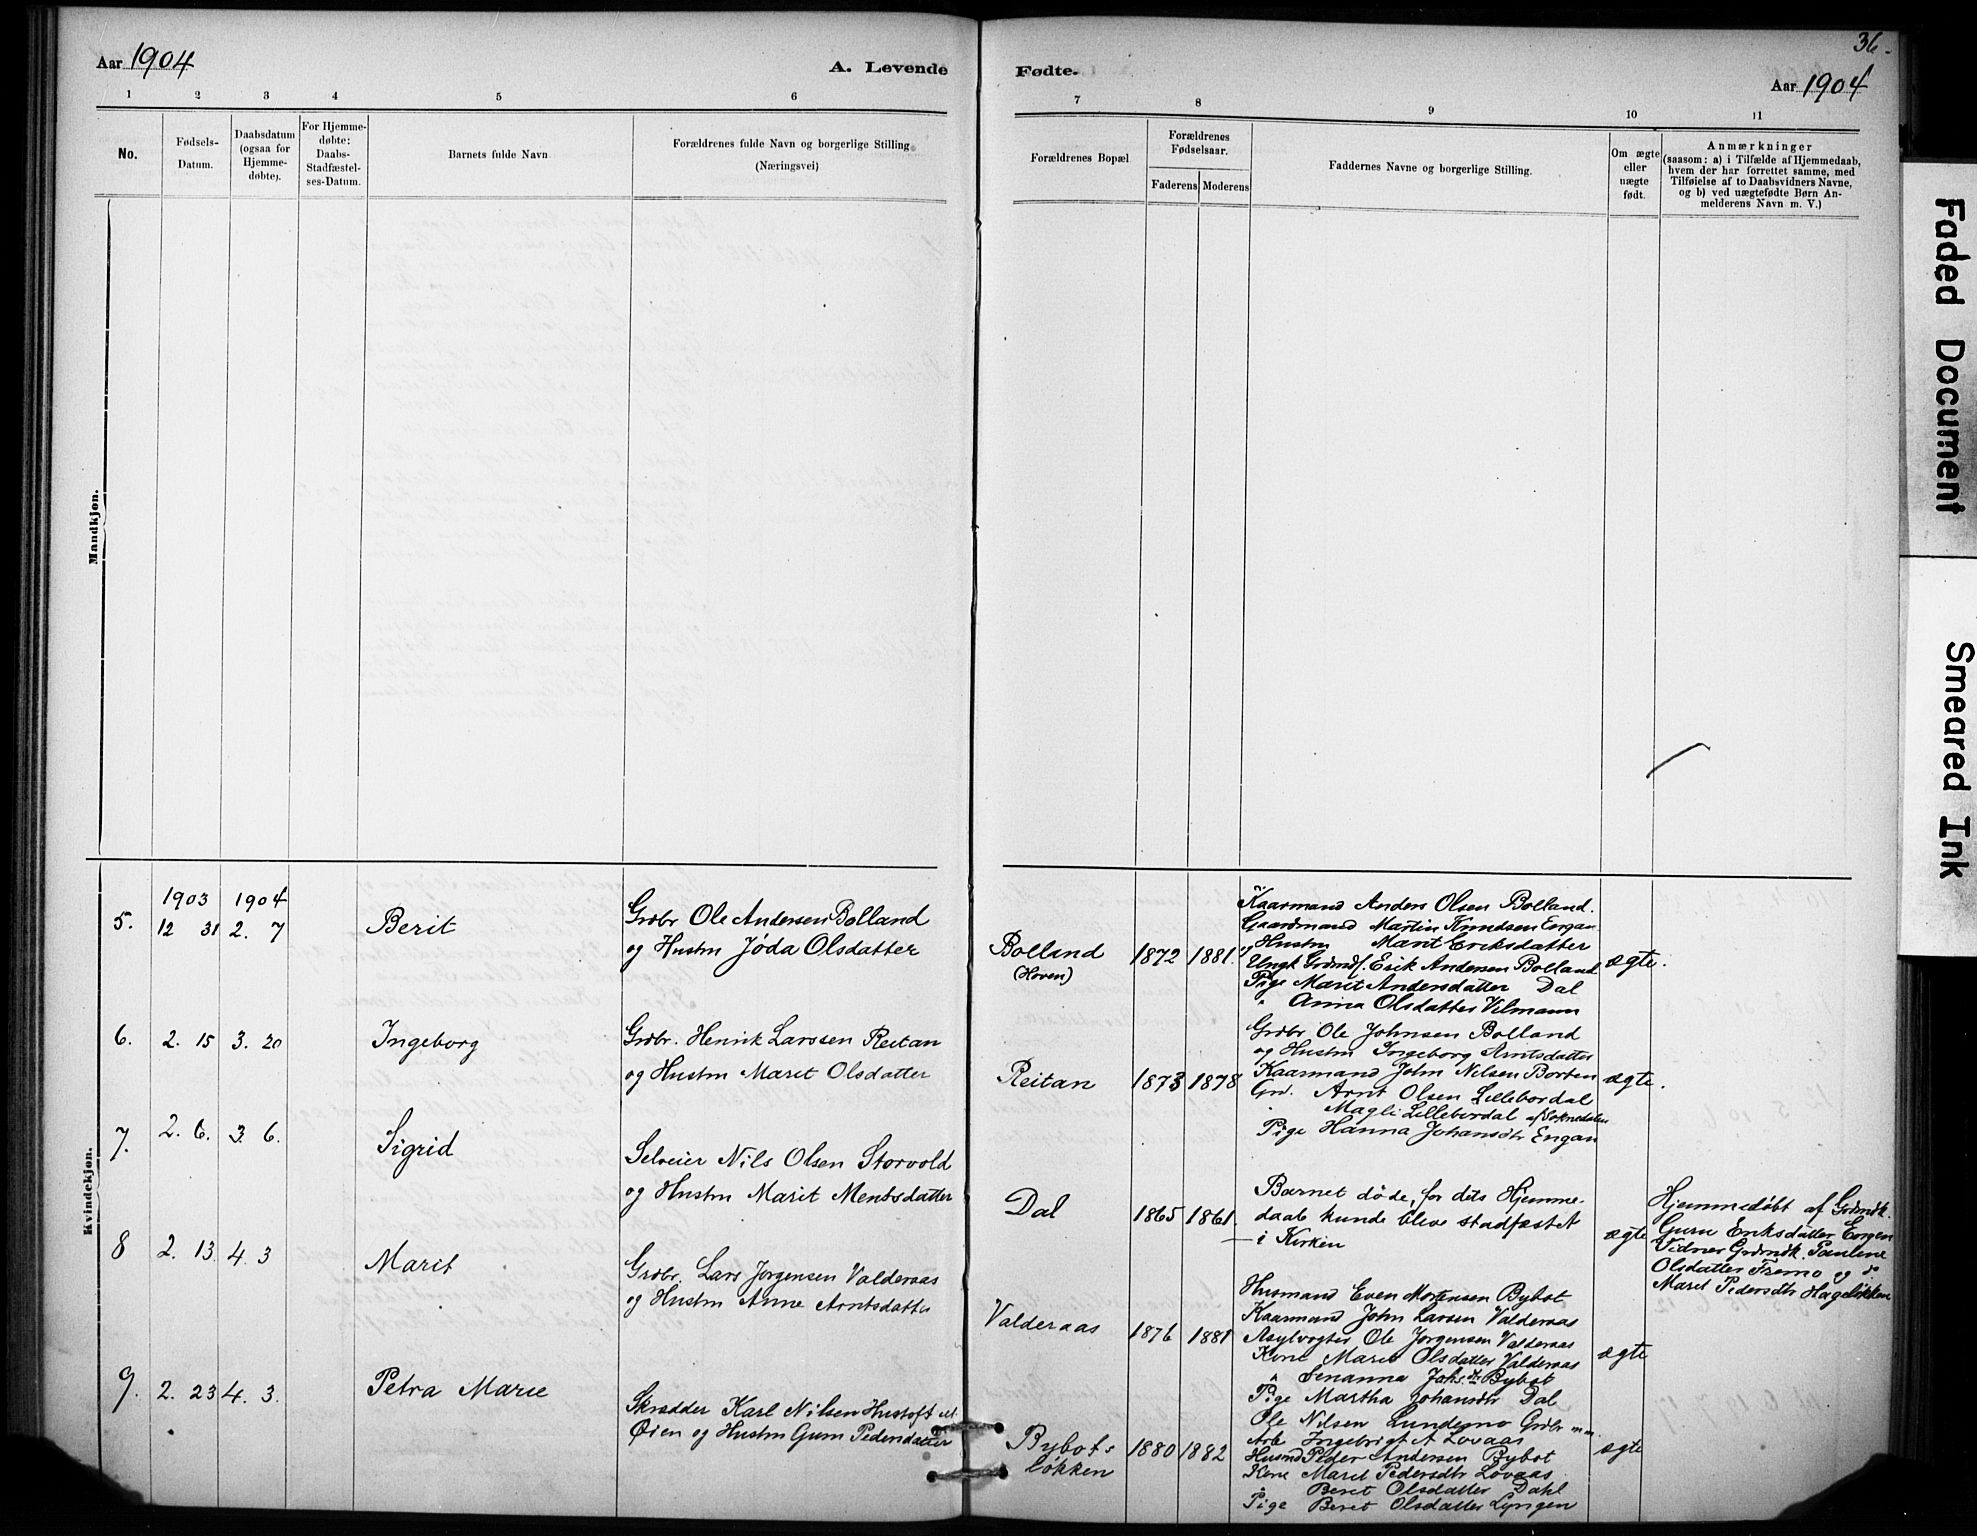 Aar 1904
A. Levende
1 2 3 4 5 6
No.
Fødsels-
Datum.
Daabsdatum
(ogsaa for
Hjemme-
døbte).
For Hjemme-
døbte;
Daabs-
Stadfæstel-
ses-Datum.
Barnets fulde Navn
Forældrenes fulde Navn og borgerlige Stilling
(Næringsvei)
Mandkjøn.
Kvindekjøn.
1903 1904
5. 12 31 2. 7 Berit
Grdbr Ole Andersen Bolland
og Hustru Jøda Olsdatter
6. 2. 15 3. 20 Ingeborg
Grdbr. Henrik Larssen Reitan
og Hustru Marit Olsdatter
7. 2. 6. 3. 6. Sigrid
Selveier Nils Olsen Storvold
og Hustru Marit Mentsdatter
8 2. 13. 4. 3 Marit
Grdbr. Lars Jørgensen Valderaas
og Hustru Anne Arntsdatter
9. 2. 23 4. 3. Petra Marie
Skrædder Karl Nilsen Hustoft
Øien og Hustru Guru Pedersdatter
36.
Fødte.
Aar 1904
7 8 9 10 11
Forældrenes Bopæl
Forældrenes
Fødselsaar.
Faderens Moderens
Faddernes Navne og borgerlige Stilling.
Om ægte
eller
uægte
født.
Anmærkninger
(saasom: a) i Tilfælde af Hjemmedaab,
hvem der har forrettet samme, med
Tilføielse af to Daabsvidners Navne,
og b) ved uægtefødte Børn An-
melderens Navn m. V.)
Bolland
(Hoven)
1872 1881.
Kaarmand Anders Olsen Bolland.
Gaardmand Martin Knudsen Engan
Hustru Marit Eriksdatter
Ungk Grdmds. Erik Andersen Bolland
Pige Marit Andersdatter Dal
" Anna Olsdatter Vilmann
ægte.
Reitan 1873 1878
Grdbr Ole Johnsen Bolland
og Hustru Ingeborg Arntsdatter
Kaarmand John Nilsen Borten
Grd. Arnt Olsen Lillebordal
Magli Lillebordal af Soknedalen
Pige Hanna Johansdtr Engan
ægte.
Dal 1865 1861.
Barnet døde, før dets Hjemme-
daab kunde blive stadfæstet
i Kirken
ægte
Hjemmedøbt af Grdmdk.
Guru Eriksdatter Engen
Vidner Grdmdk. Pauline
Olsdatter Fremo og
Marit Pedersdtr Hageløkken
Valderaas 1876 1881
Husmand Even Mortensen Bybot
Kaarmand John Larsen Valderaas
Asylvogter Ole Jørgensen Valderaas
Kone Marit Olsdatter Valderaas
" Senanna Johs.dtr Bybot
Pige Martha Johansdtr Dal
ægte
Bybots-
løkken
1880 1882
Ole Nilsen Lundemo Grdbr
Arb Ingebrigt A Lovaas
Husmd Peder Andersen Bybot
Kone Marit Pedersdtr Lovaas
" Beret Olsdatter Dahl
Pige Beret Olsdatter Lyngen
ægte
Faded Document
Smeared Ink